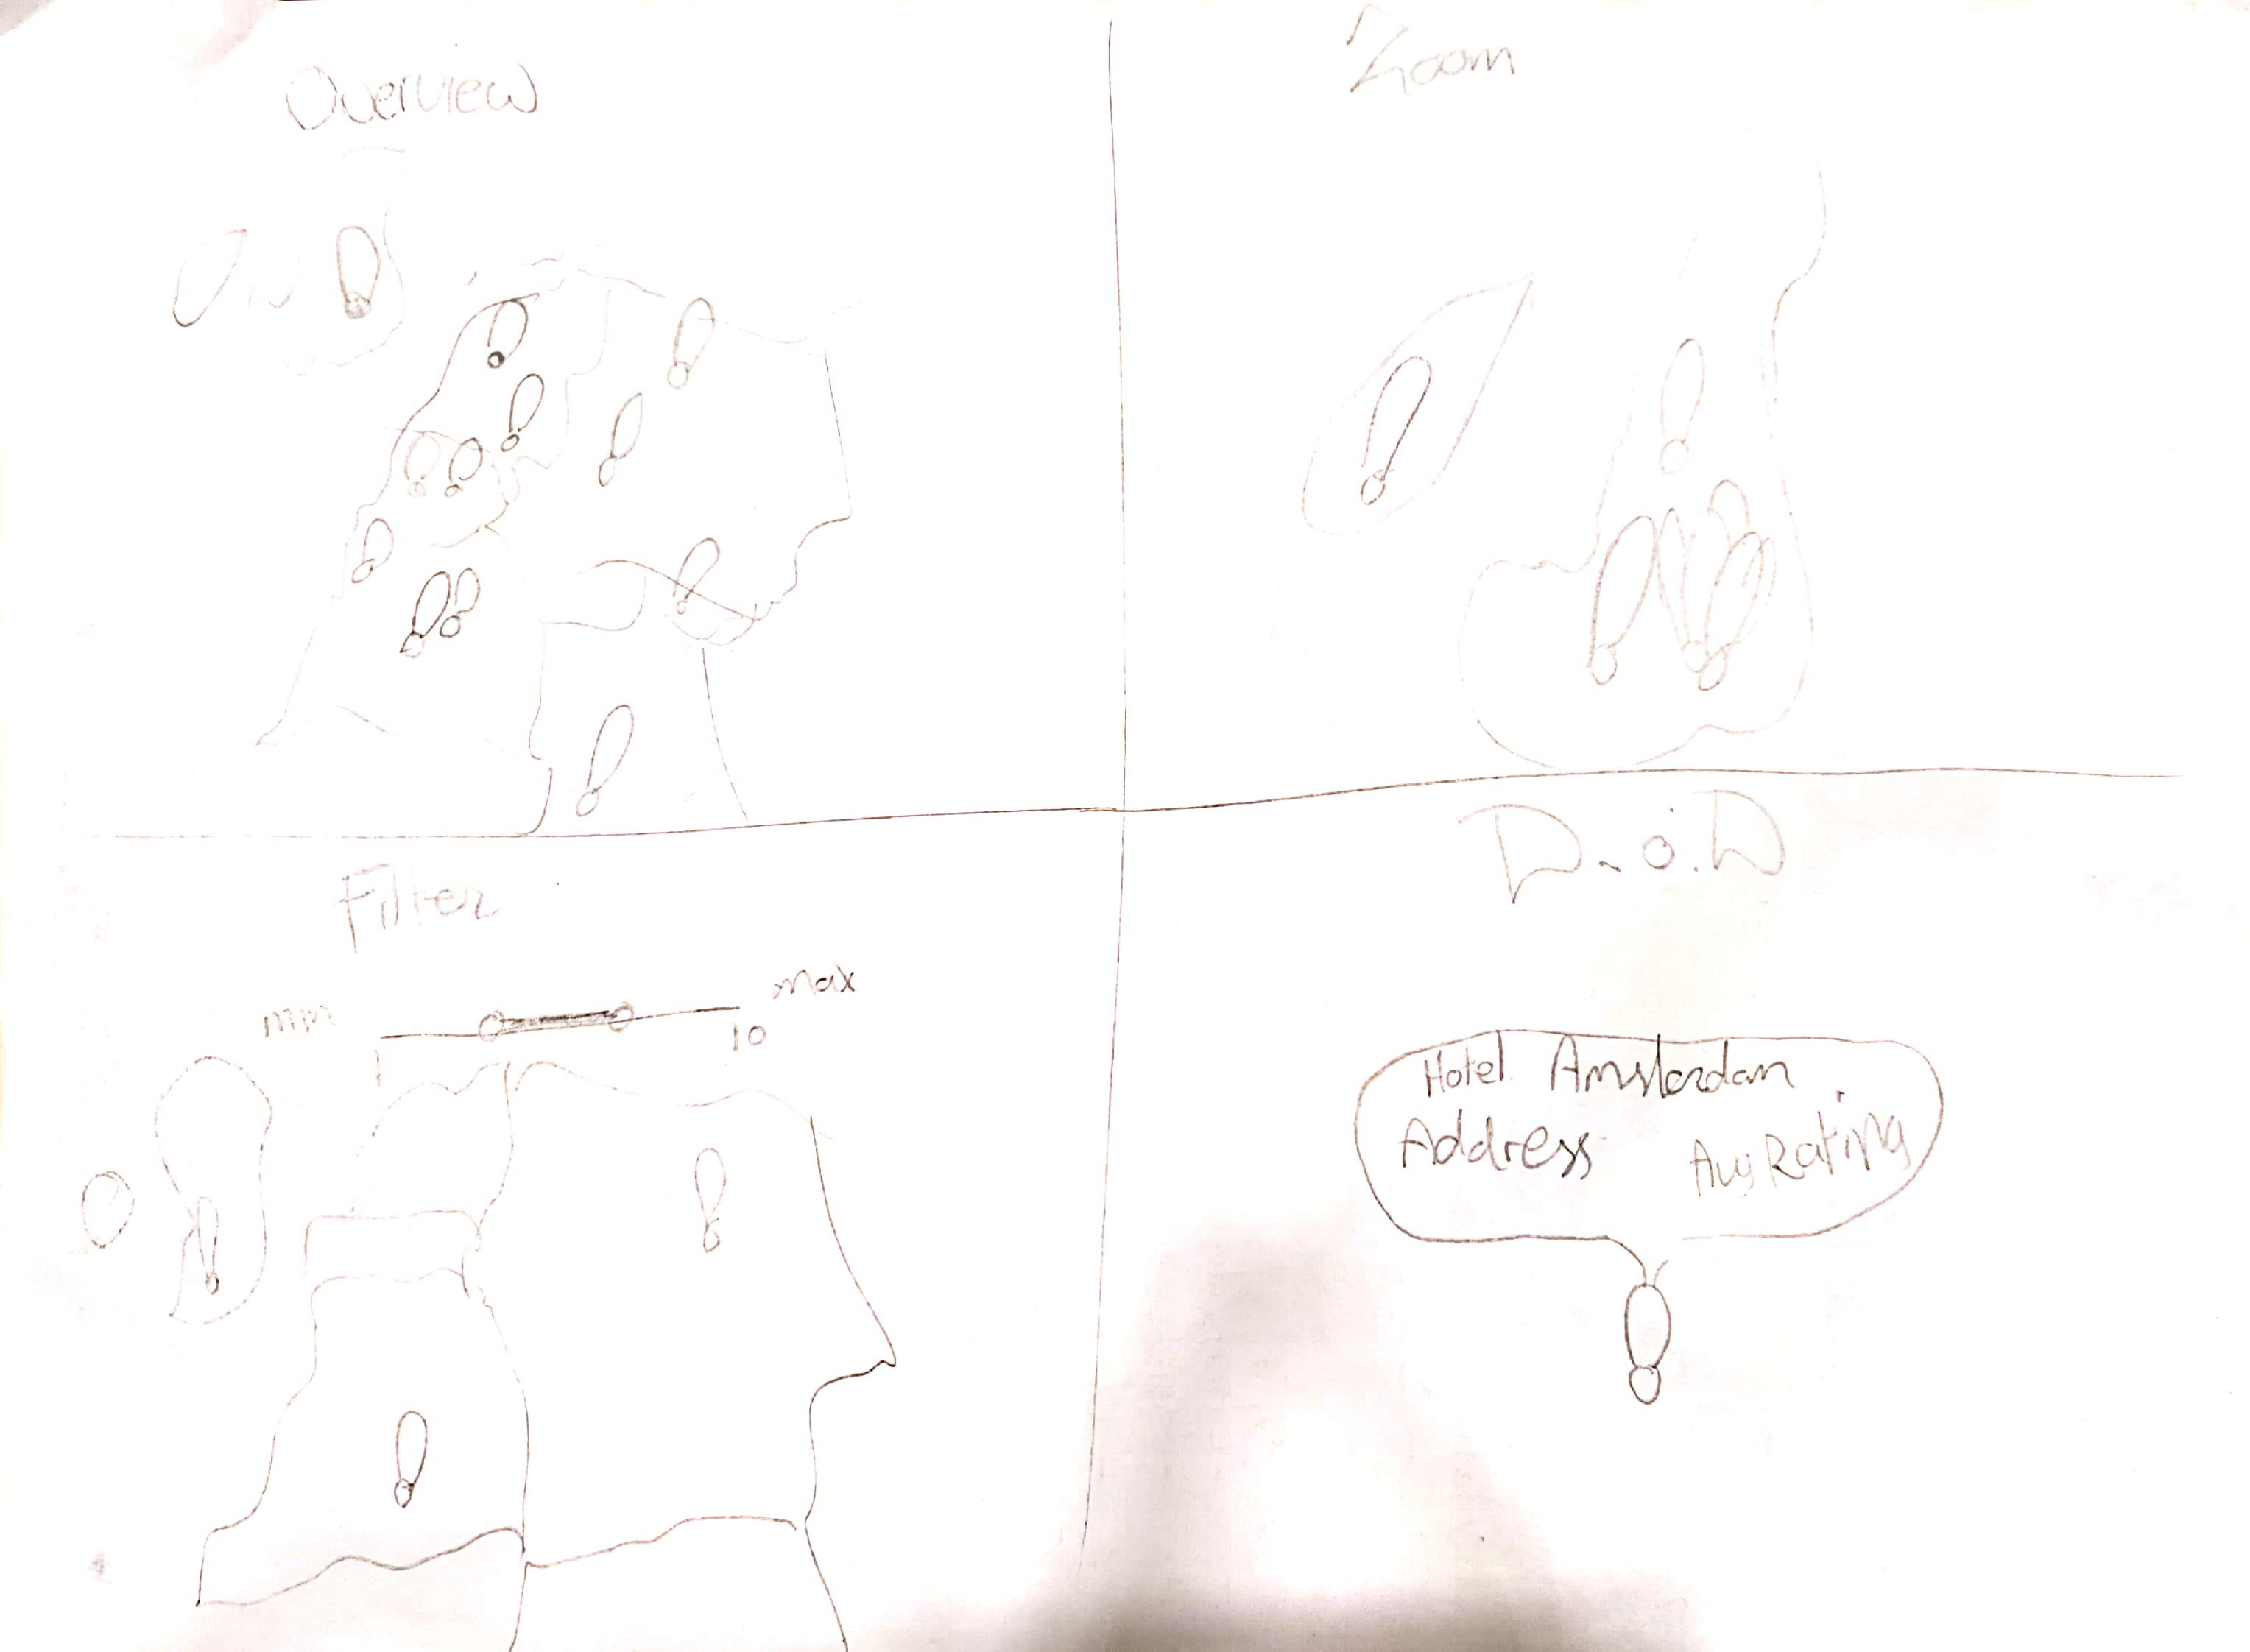 Overview
Zoom
Filter
min
max
1
10
D.o.D
Hotel Amsterdam
Address
Avg Rating